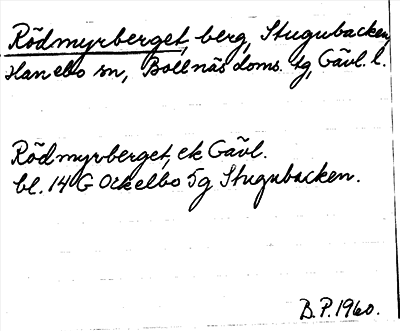 Rödmyrberget, berg, Stugubacken,
Hanebo sn, Bollnäs doms. tg, Gävl. l.
Rödmyrberget, ek Gävl.
bl. 14 G Ockelbo 5g Stugubacken.
B.P. 1960.